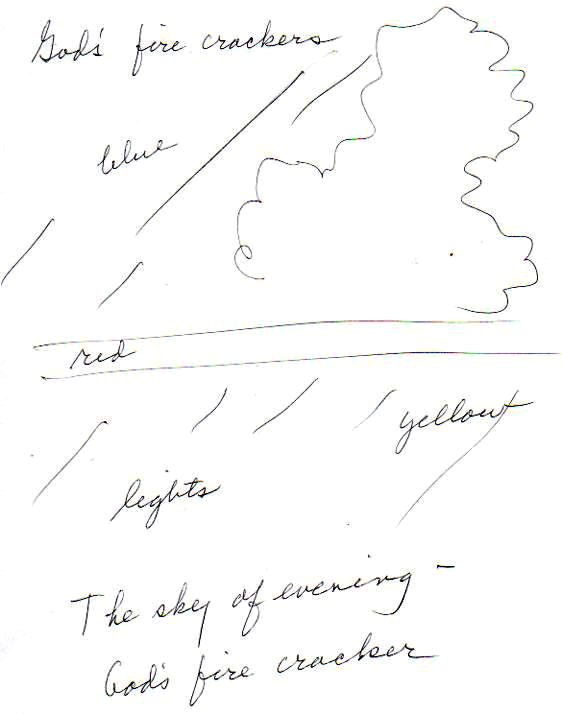 God's fire crackers
blue
red
yellow
lights
The sky of evening -
God's fire cracker